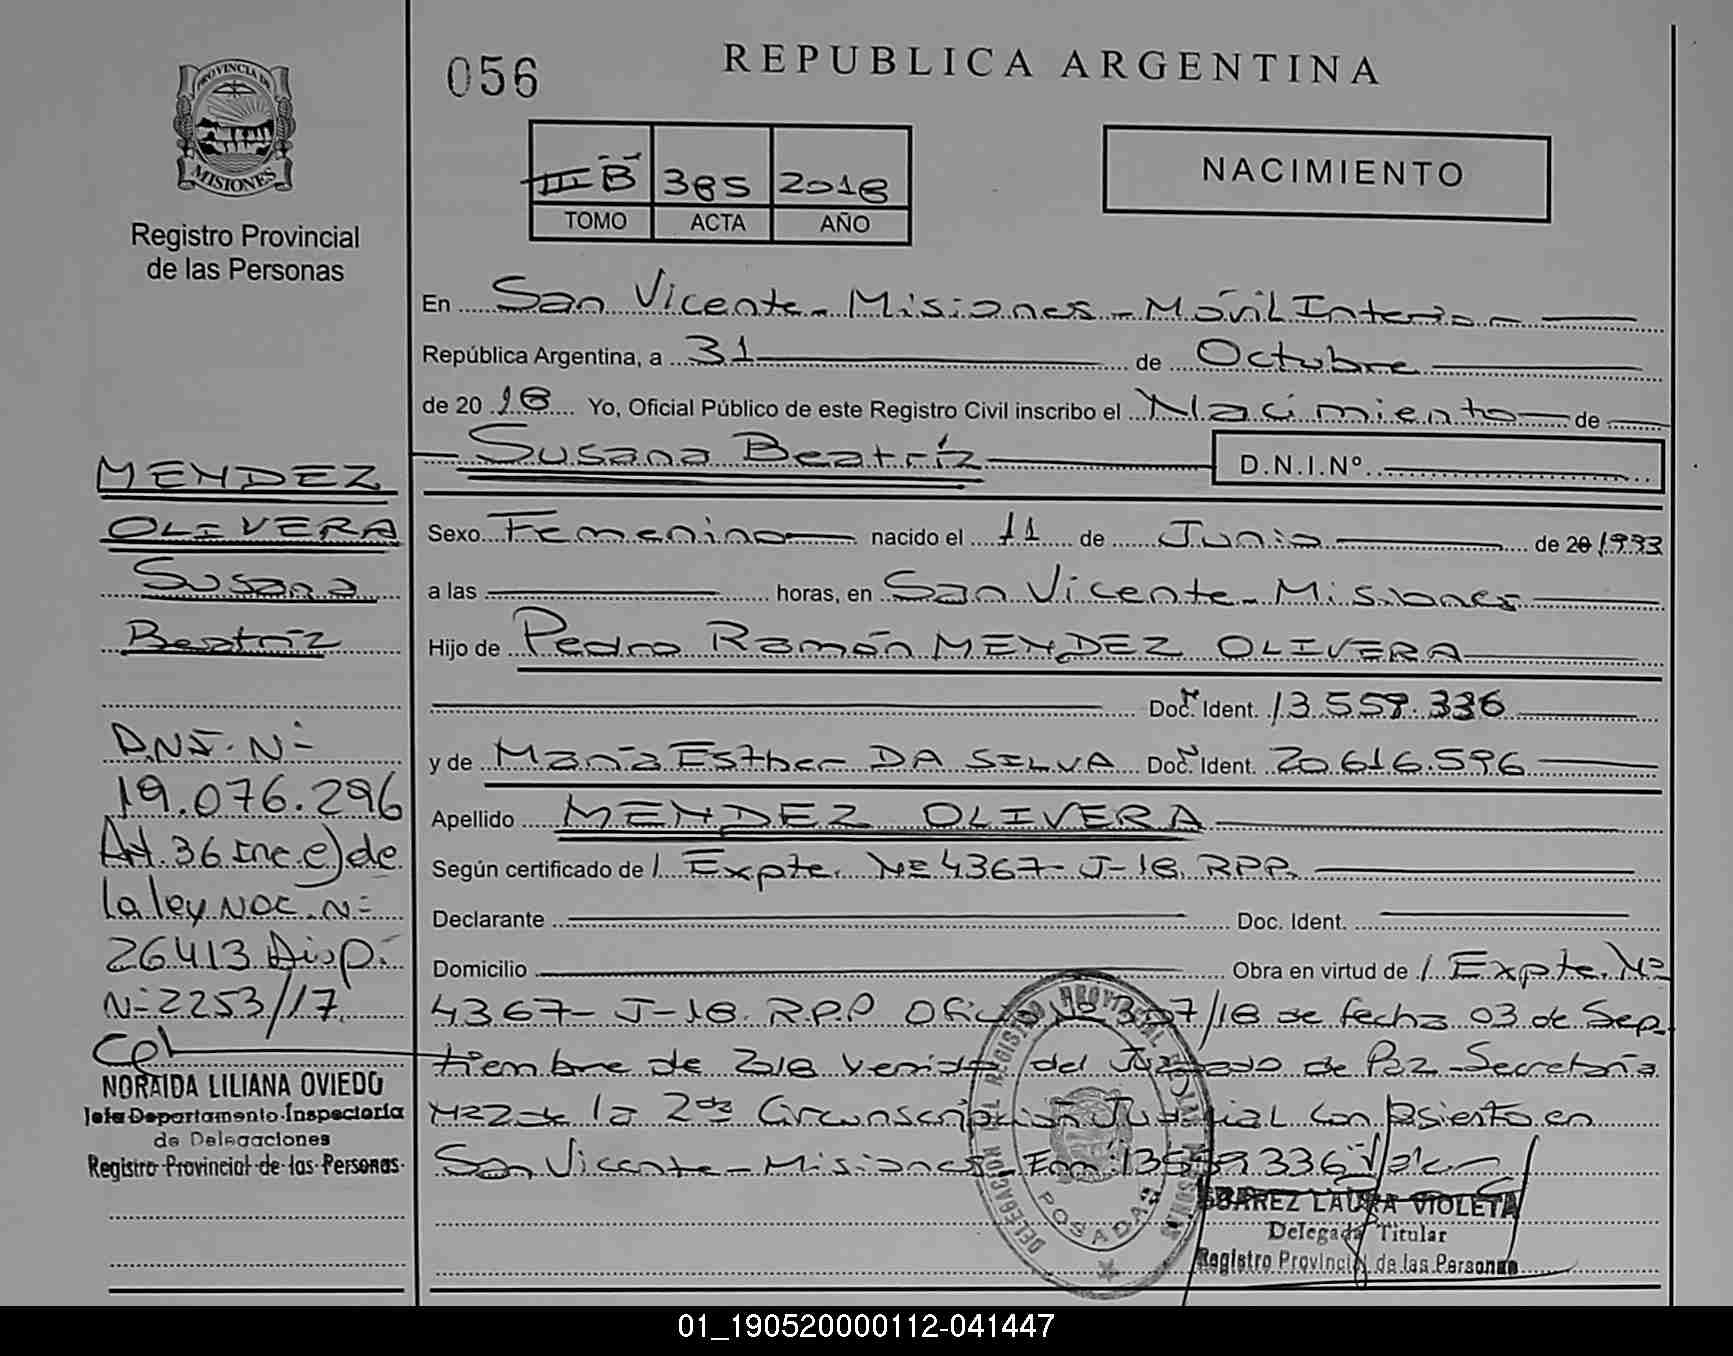 056
REPUBLICA ARGENTINA
PROVINCIA DE MISIONES
Registro Provincial
de las Personas
III B 385 2018
TOMO ACTA AÑO
NACIMIENTO
En San Vicente - Misiones - Móvil Interio -
República Argentina, a 31 de Octubre
de 20 18 Yo, Oficial Público de este Registro Civil inscribo el Nacimiento de
Susana Beatríz D.N.I.Nº
Sexo Femenino nacido el 11 de Junio de 20 1993
a las horas, en San Vicente - Misiones
Hijo de Pedro Ramón MENDEZ OLIVERA
Doc. Ident. 13.559.336
y de María Esther DA SILVA Doc. Ident. 20.616.596
Apellido MENDEZ OLIVERA
Según certificado de / Expte. Nº 4367- J-18. RPP.
Declarante Doc. Ident.
Domicilio Obra en virtud de / Expte. Nº
4367- J-18. R.P.P Oficio Nº 307/18 de fecha 03 de Sep
tiembre de 2018 venido del Juzgado de Paz - Secretaría
Nº 2 de la 2da Circunscripción Judicial con asiento en
San Vicente - Misiones - Enm: 13559336 Vale
MENDEZ
OLIVERA
Susana
Beatríz
D.N.I. Nº
19.076.296
Art. 36 Inc e) de
la ley NOC. Nº
26413 Disp.
Nº 2253/17
NORAIDA LILIANA OVIEDO
Jefa Departamento Inspectoría
de Delegaciones
Registro Provincial de las Personas
DELEGACION DEL REGISTRO PROVINCIAL DE LAS PERSONAS
POSADAS
SUAREZ LAURA VIOLETA
Delegada Titular
Registro Provincial de las Personas
01_190520000112-041447